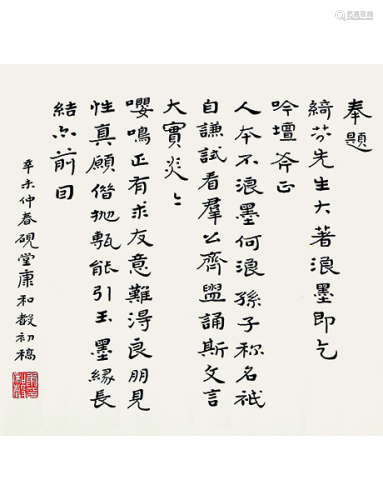 奉題
綺芬先生大著浪墨即乞
吟壇斧正
人本不浪墨何浪孫子称名祇
自謙試看羣公齊盥誦斯文言
大實炎々
嚶鳴正有求友意難得良朋見
性真願借抛甎能引玉墨緣長
結你前因
辛未仲春硯堂康和毅初稿